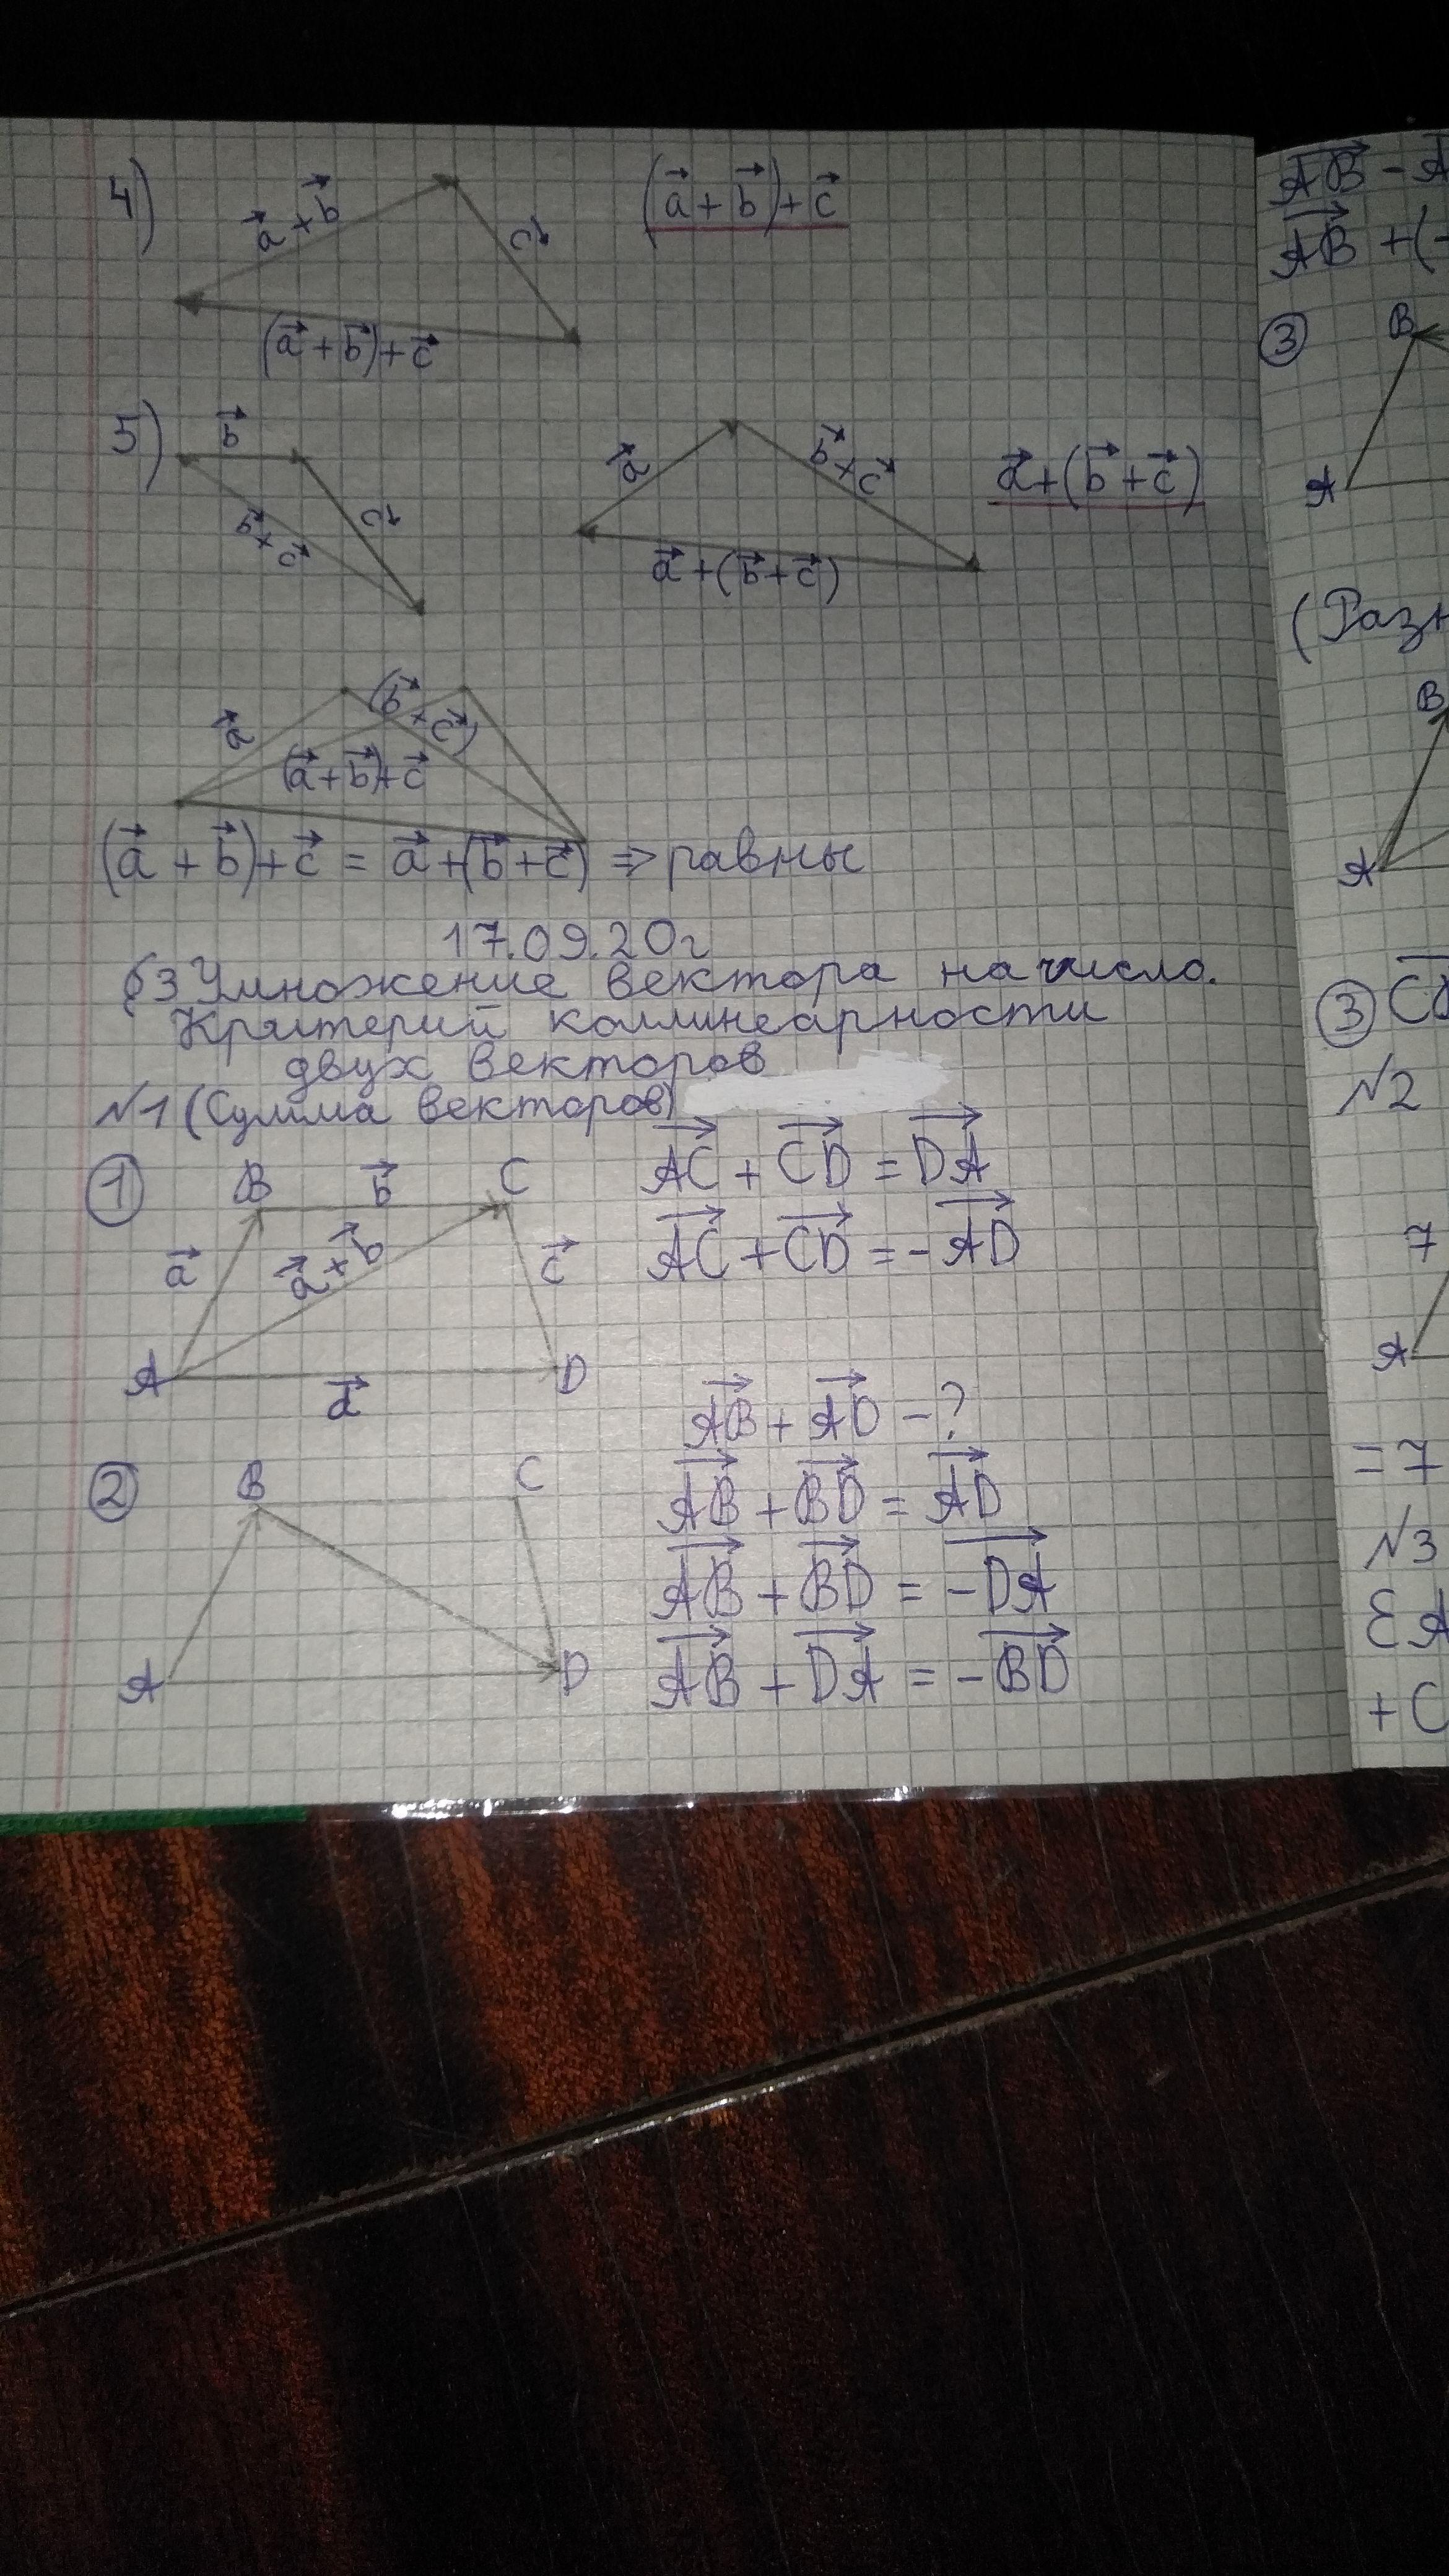 4)
a⃗ + b⃗
c⃗
(a⃗ + b⃗) + c⃗
(a⃗ + b⃗) + c⃗
5)
b⃗
c⃗
b⃗ + c⃗
a⃗
b⃗ + c⃗
a⃗ + (b⃗ + c⃗)
a⃗ + (b⃗ + c⃗)
a⃗
(b⃗ + c⃗)
(a⃗ + b⃗) + c⃗
(a⃗ + b⃗) + c⃗ = a⃗ + (b⃗ + c⃗) => равны
17.09.20г
§3 Умножение вектора на число.
Критерий коллинеарности
двух векторов
№1 (Сумма векторов)
①
B
b⃗
C
a⃗
a⃗ + b⃗
c⃗
A
D
d⃗
AC⃗ + CD⃗ = DA⃗
AC⃗ + CD⃗ = -AD⃗
AB⃗ + AD⃗ - ?
②
B
C
A
D
AB⃗ + BD⃗ = AD⃗
AB⃗ + BD⃗ = -DA⃗
AB⃗ + DA⃗ = -BD⃗
AB⃗ - A
AB⃗ + (-
③
B
A
(Разн
B
A
③
№2
7
A
= 7
№3
+ C